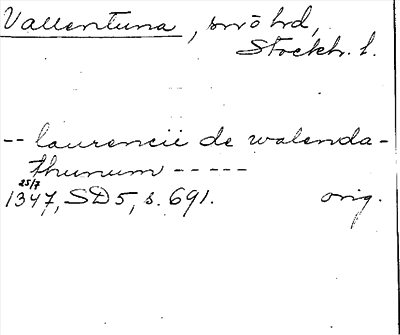 Vallentuna, snrō hd,
Stockh. l.
-- laurencii de walenda-
thunum -----
25/7
1347, SD 5, s. 691. orig.